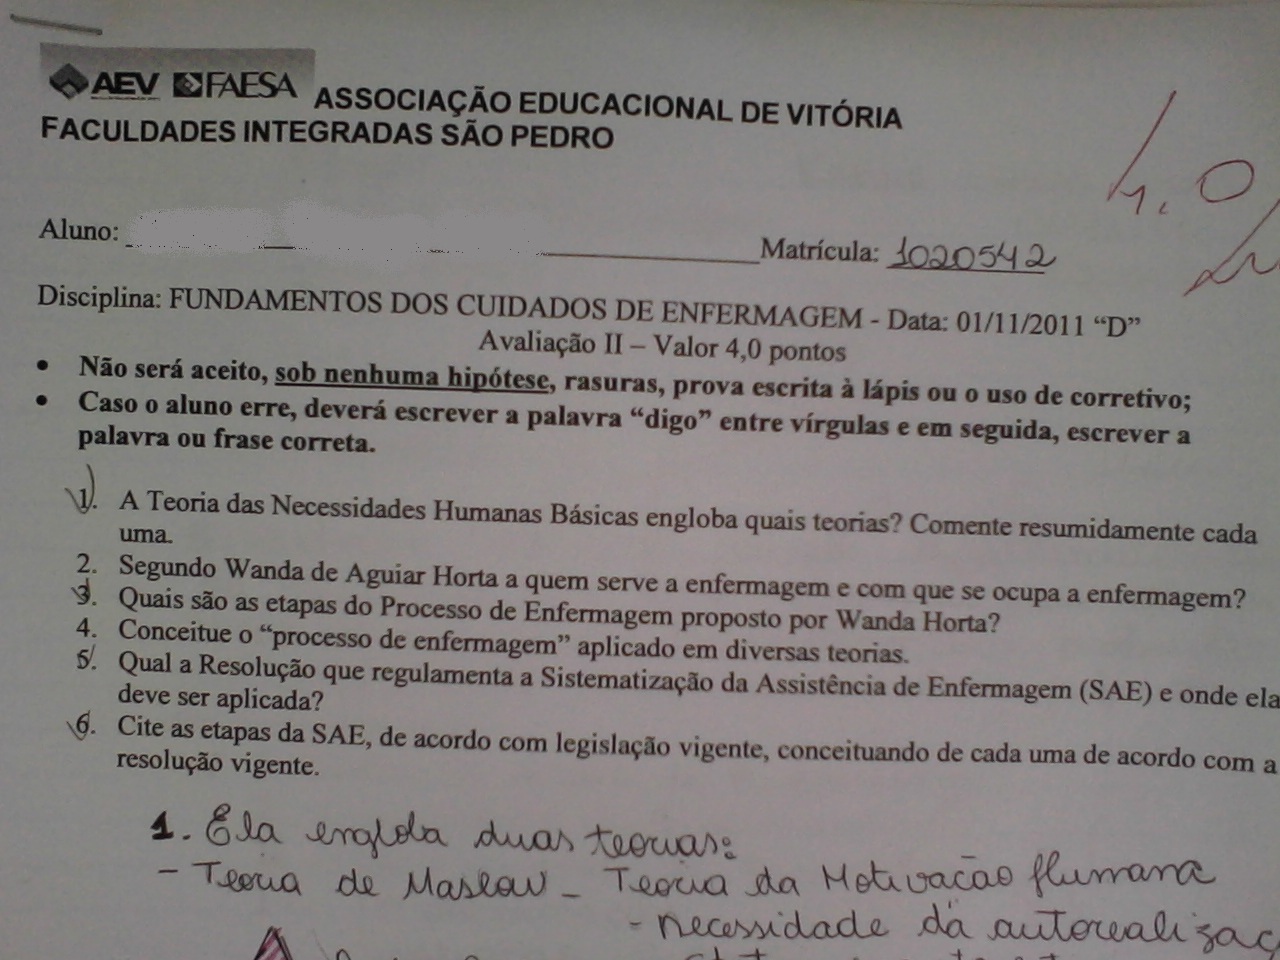 AEV FAESA ASSOCIAÇÃO EDUCACIONAL DE VITÓRIA
FACULDADES INTEGRADAS SÃO PEDRO
4.0
Aluno: Matrícula: 1020542
Disciplina: FUNDAMENTOS DOS CUIDADOS DE ENFERMAGEM - Data: 01/11/2011 “D”
Avaliação II – Valor 4,0 pontos
• Não será aceito, sob nenhuma hipótese, rasuras, prova escrita à lápis ou o uso de corretivo;
• Caso o aluno erre, deverá escrever a palavra “digo” entre vírgulas e em seguida, escrever a
palavra ou frase correta.
1. A Teoria das Necessidades Humanas Básicas engloba quais teorias? Comente resumidamente cada
uma.
2. Segundo Wanda de Aguiar Horta a quem serve a enfermagem e com que se ocupa a enfermagem?
3. Quais são as etapas do Processo de Enfermagem proposto por Wanda Horta?
4. Conceitue o “processo de enfermagem” aplicado em diversas teorias.
5. Qual a Resolução que regulamenta a Sistematização da Assistência de Enfermagem (SAE) e onde ela
deve ser aplicada?
6. Cite as etapas da SAE, de acordo com legislação vigente, conceituando de cada uma de acordo com a
resolução vigente.
1. Ela engloba duas teorias:
- Teoria de Maslow - Teoria da Motivação Humana
- necessidade da autorealizaç